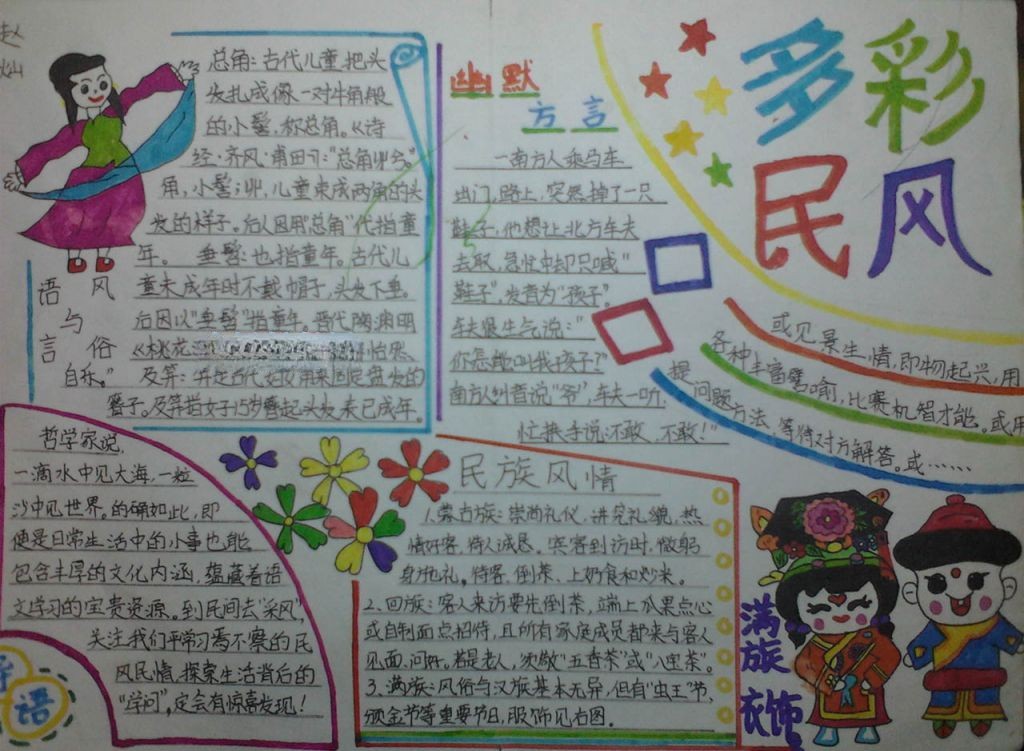 赵
灿
多彩
民风
总角:古代儿童把头
发扎成像一对牛角般
的小髻,称总角。《诗
经·齐风·甫田》:"总角丱兮。"
角,小髻;丱,儿童束成两角的头
发的样子。后人因用"总角"代指童
年。 垂髫:也指童年。古代儿
童未成年时不戴帽子,头发下垂。
后因以"垂髫"指童年。晋代陶渊明
《桃花
怡然
自乐。" 及笄:笄是古代女孩用来固定盘发的
簪子。及笄指女子15岁叠起头发,表已成年。
语言与风俗
幽默
方言
一南方人乘马车
出门,路上,突然掉了一只
鞋子,他想让北方车夫
去取,急忙中却只喊"
鞋子",发音为"孩子"。
车夫很生气说:"
你怎能叫我孩子?"
南方人纠着说"爷",车夫一听,
忙挟手说:不敢,不敢!"
或见景生情,即物起兴,用
各种丰富譬喻,比赛机智才能。或用
提问题方法,等待对方解答。或……
哲学家说,
一滴水中见大海,一粒
沙中见世界。的确如此,即
便是日常生活中的小事也能
包含丰厚的文化内涵,蕴藏着语
文学习的宝贵资源。到民间去"采风",
关注我们平常习焉不察的民
风民情,探索生活背后的
"学问",定会有惊喜发现!
语
民族风情
1、蒙古族:崇尚礼仪,讲究礼貌,热
情好客,待人诚恳。宾客到访时,微躬
身施礼。待客,倒茶、上奶食和炒米。
2、回族:客人来访要先倒茶,端上瓜果点心
或自制面点招待,且所有家庭成员都来与客人
见面、问好。若是老人,须敬"五香茶"或"八宝茶"。
3、满族:风俗与汉族基本无异,但有"虫王"节、
颁金节等重要节日,服饰见右图。
满族
衣饰